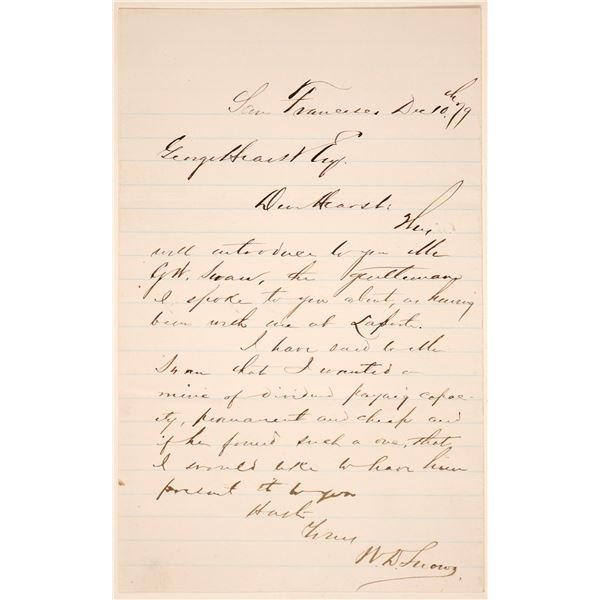 San Francisco Dec 10th 79
George Hearst Esq.
Dear Hearst
This
will introduce to you Mr
G.W. Swan, the gentleman
I spoke to you about, as having
been with me at Laporte.
I have said to Mr
Swan that I wanted a
mine of dividend paying capac-
ity, permanent and cheap and
if he found such a one, that
I would like to have him
present it to you
Yours